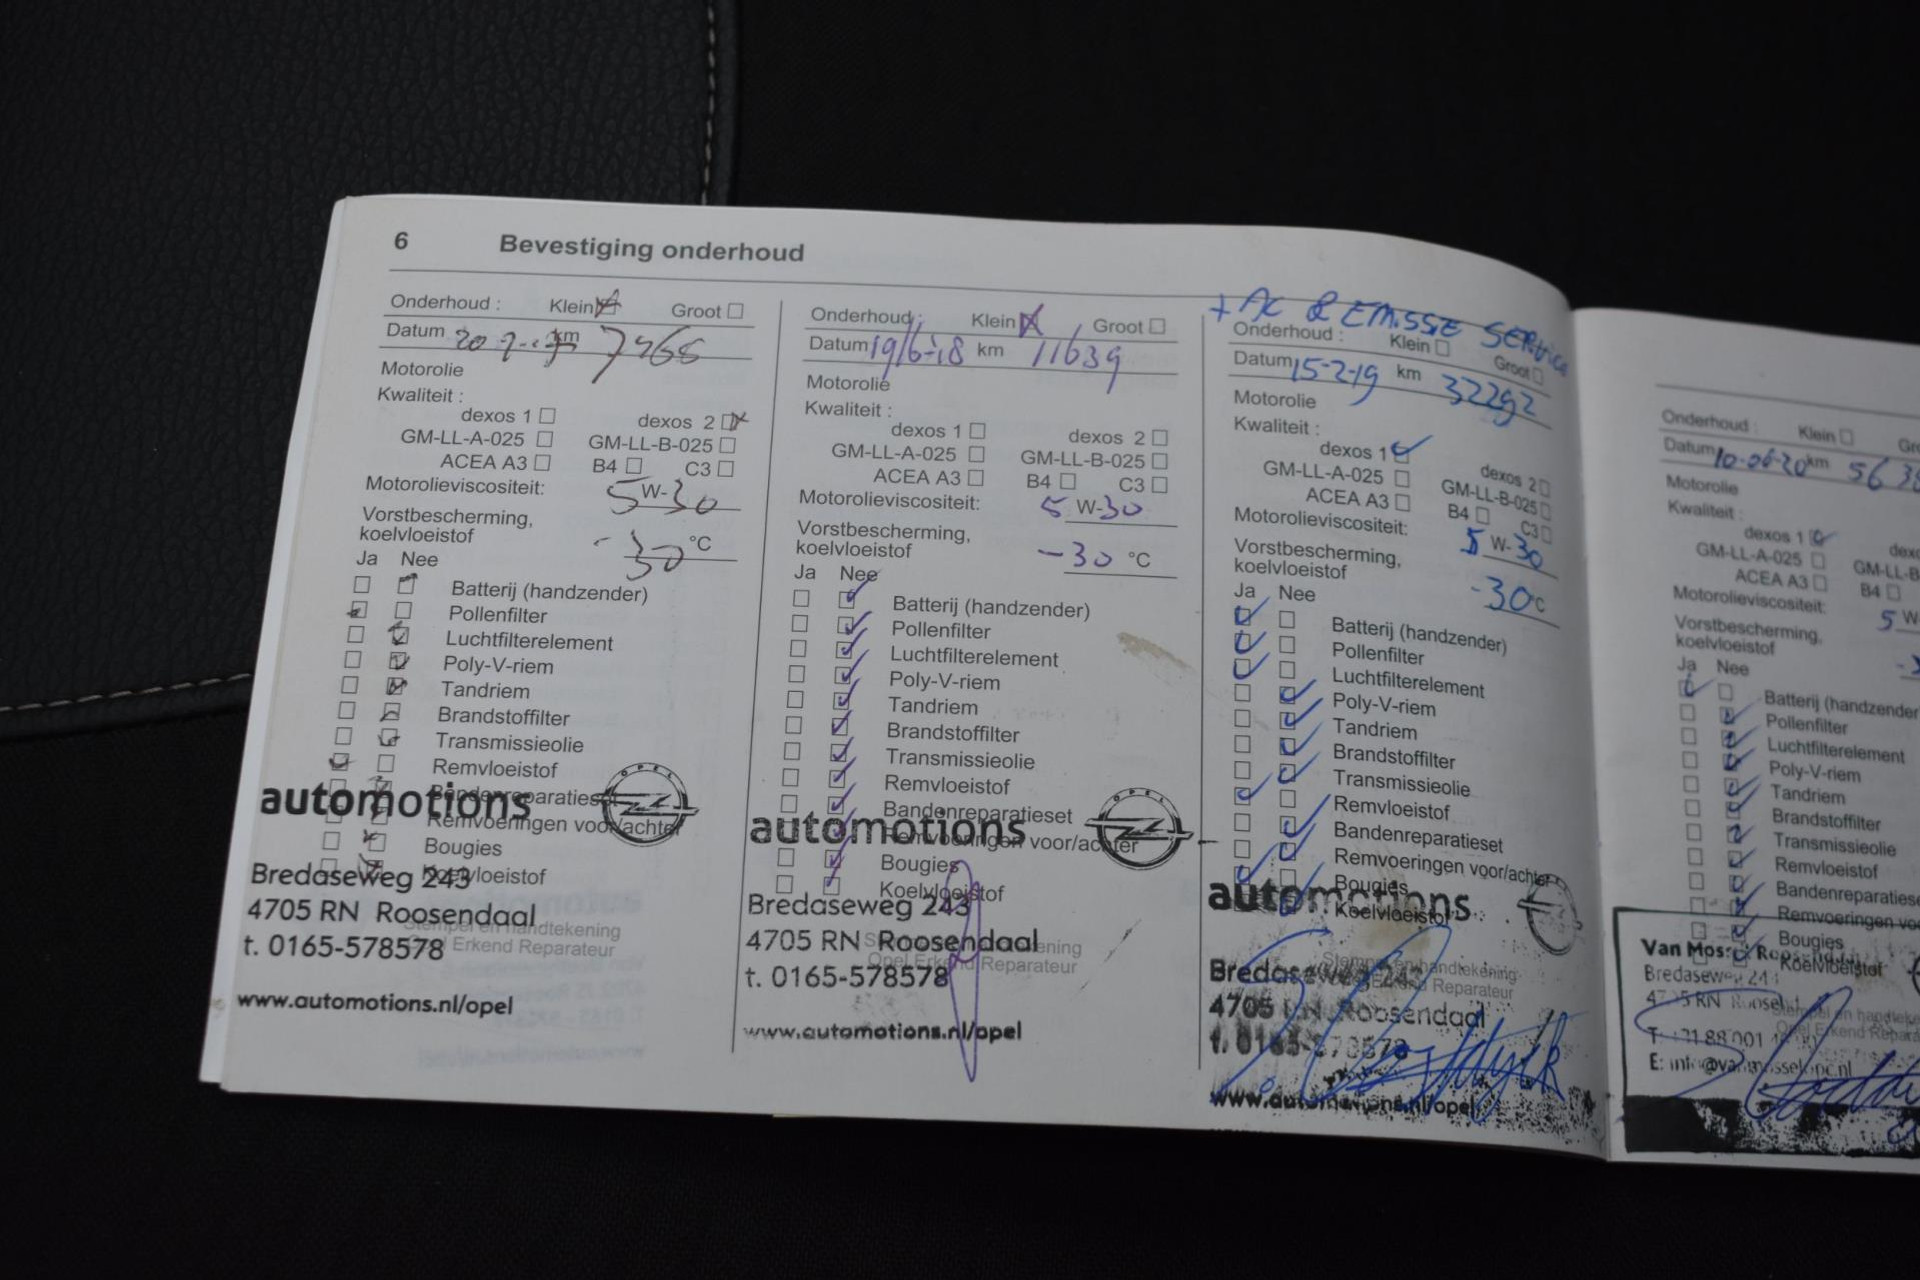 6 Bevestiging onderhoud
Onderhoud : Klein Groot
Datum km 7468
Motorolie
Kwaliteit :
dexos 1 dexos 2
GM-LL-A-025 GM-LL-B-025
ACEA A3 B4 C3
Motorolieviscositeit: 5 W-30
Vorstbescherming,
koelvloeistof -30 °C
Ja Nee
Batterij (handzender)
Pollenfilter
Luchtfilterelement
Poly-V-riem
Tandriem
Brandstoffilter
Transmissieolie
Remvloeistof
Bandenreparatieset
Remvoeringen voor/achter
Bougies
Koelvloeistof
Stempel en handtekening
Opel Erkend Reparateur
OPEL
automotions
Bredaseweg 243
4705 RN Roosendaal
t. 0165-578578
www.automotions.nl/opel
Onderhoud : Klein Groot
Datum 19/6-18 km 11639
Motorolie
Kwaliteit :
dexos 1 dexos 2
GM-LL-A-025 GM-LL-B-025
ACEA A3 B4 C3
Motorolieviscositeit: 5 W-30
Vorstbescherming,
koelvloeistof -30 °C
Ja Nee
Batterij (handzender)
Pollenfilter
Luchtfilterelement
Poly-V-riem
Tandriem
Brandstoffilter
Transmissieolie
Remvloeistof
Bandenreparatieset
Remvoeringen voor/achter
Bougies
Koelvloeistof
Stempel en handtekening
Opel Erkend Reparateur
OPEL
automotions
Bredaseweg 243
4705 RN Roosendaal
t. 0165-578578
www.automotions.nl/opel
+ AC & EMISSIE SERVICE
Onderhoud : Klein Groot
Datum 15-2-19 km 32292
Motorolie
Kwaliteit :
dexos 1 dexos 2
GM-LL-A-025 GM-LL-B-025
ACEA A3 B4 C3
Motorolieviscositeit: 5 W-30
Vorstbescherming,
koelvloeistof -30 °C
Ja Nee
Batterij (handzender)
Pollenfilter
Luchtfilterelement
Poly-V-riem
Tandriem
Brandstoffilter
Transmissieolie
Remvloeistof
Bandenreparatieset
Remvoeringen voor/achter
Bougies
Koelvloeistof
Stempel en handtekening
Opel Erkend Reparateur
automotions
Bredaseweg 243
4705 RN Roosendaal
t. 0165-578578
www.automotions.nl/opel
Onderhoud : Klein Gro
Datum 10-06-20 km 56
Motorolie
Kwaliteit :
dexos 1 dexo
GM-LL-A-025 GM-LL-B
ACEA A3 B4
Motorolieviscositeit: 5 W
Vorstbescherming,
koelvloeistof
Ja Nee
Batterij (handzender
Pollenfilter
Luchtfilterelement
Poly-V-riem
Tandriem
Brandstoffilter
Transmissieolie
Remvloeistof
Bandenreparatiese
Remvoeringen vo
Bougies
Koelvloeistof
Van Mossel
Bredaseweg